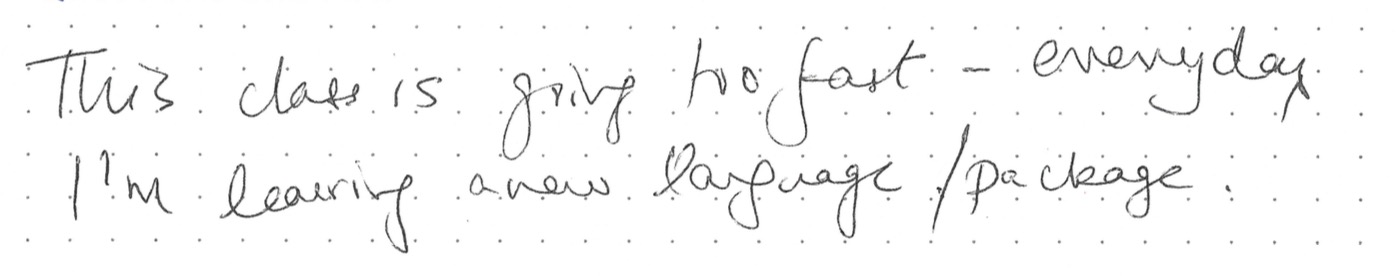 This class is going too fast - everyday
I'm learning a new language/package.